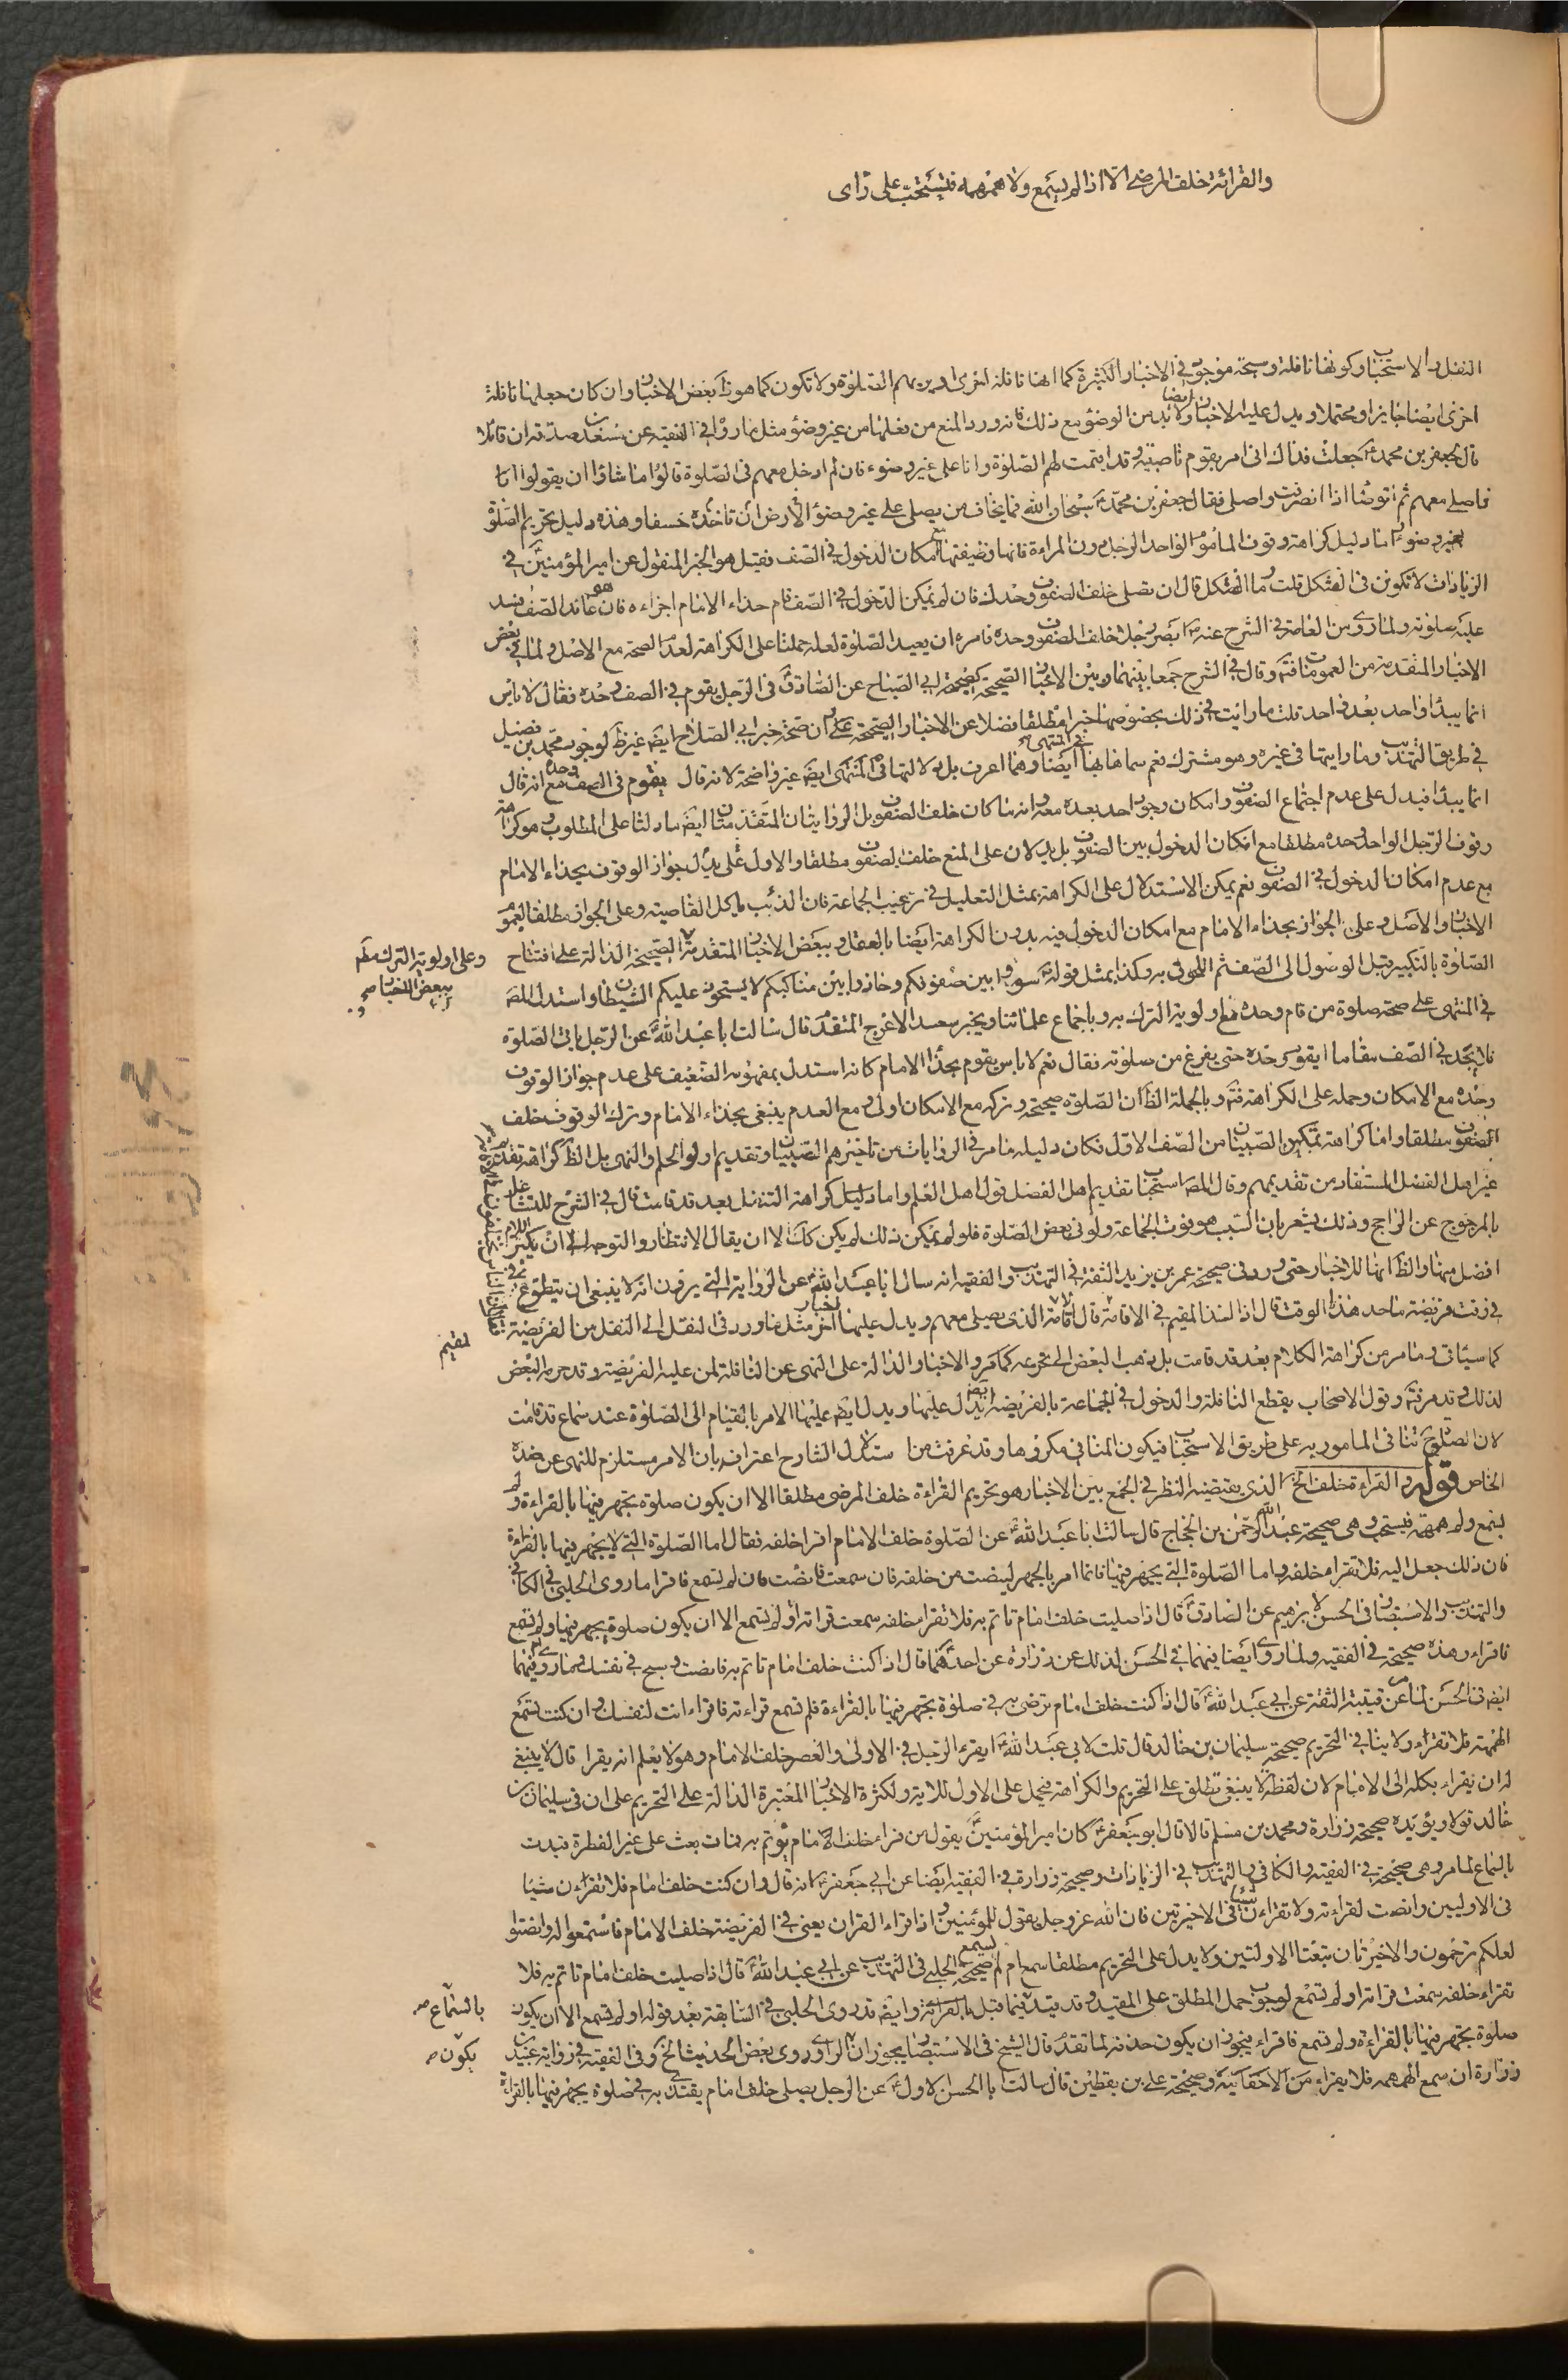 والقرائة خلف المرضى الا اذا لم يسمع ولا همهمه فيستحب على راى
النفل والاستحباب وكونها نافلة وسبحة موجود فى الاخبار الكثيرة كما انها نافلة اخرى لمن يريهم الصلوة ولا تكون كما هو ظ بعض الاخبار وان كان جعلها نافلة
اخرى ايضا جايزا ومحتملا ويدل عليه الاخبار ايضا ولا بد من الوضوء مع ذلك فانه ورد المنع من فعلها من غير وضوء مثل ما روا فى الفقيه عن مسعدة بن صدقة ان قائلا
قال لجعفر بن محمد ع جعلت فداك انى امر بقوم ناصبية وقد اقيمت لهم الصلوة وانا على غير وضوء فان لم ادخل معهم فى الصلوة قالوا ما شاؤا ان يقولوا انا
فاصلى معهم ثم اتوضا اذا انصرفت واصلى فقال جعفر بن محمد ع سبحان الله فما يخاف من يصلى على غير وضوء الارض ان تاخذه خسفا وهذه دليل تحريم الصلوة
بغير وضوء اما دليل كراهة وقوف المأموم الواحد الرجل دون المراءة فانها وظيفتها مع امكان الدخول فى الصف فقيل هو الخبر المنقول عن امير المؤمنين ع فى
الزيادات لا تكونن فى العثكل قلت وما العثكل قال ان تصلى خلف الصفوف وحدك فان لم يمكن الدخول فى الصف قام حذاء الامام اجزاه فان هو عاند الصف فسد
عليه صلوته ولما روى من العامة فى الشرح عنه ص ابصر رجلا خلف الصفوف وحده فامره ان يعيد الصلوة لعله حملنا على الكراهة لعدم الصحة مع الاصل ولما فى بعض
الاخبار المتقدمة من العموم فتامل وقال فى الشرح جمعا بينهما وبين الاخبار الصحيحة كصحيحة ابى الصباح عن الصادق ع فى الرجل يقوم فى الصف وحده فقال لا باس
انما يبدأ واحد بعد واحد قلت ما رايت فى ذلك بخصوصها خبرا مطلقا فضلا عن الاخبار الصحيحة على ان صحة خبر ابى الصلاح ايضا غير ظ لوجود محمد بن فضيل
فى طريق التهذيب وما رايتها فى غيره وهو مشترك نعم سماها بها فى المنتهى ايضا وهما اعرف بل دلالتها فى المنتهى ايضا غير واضحة لانه قال يقوم فى الصف وحده مع انه قال
انما يبدأ فيدل على عدم اجتماع الصفوف وامكان وجود احد بعده معه وانه ما كان خلف الصفوف بل الروايتان المتقدمتان ايضا ما دلتا على المطلوب وهو كراهة
وقوف الرجل الواحد وحده مطلقا مع امكان الدخول بين الصفوف بل يدلان على المنع خلف الصفوف مطلقا والاول على يدل جواز الوقوف بحذاء الامام
مع عدم امكان الدخول فى الصفوف نعم يمكن الاستدلال على الكراهة بمثل التعليل فى ترغيب الجماعة فان الذئب ياكل القاصية وعلى الجواز مطلقا لعموم
الاخبار والاصل وعلى الجواز بحذاء الامام مع امكان الدخول فيه بدون الكراهة ايضا بالعقل وببعض الاخبار المتقدمة الصحيحة الدالة على افتتاح
الصلوة بالتكبير قبل الوصول الى الصف ثم اللحوق به وكذا بمثل قوله ع سووا بين صفوفكم وحاذوا بين مناكبكم لا يستحوذ عليكم الشيطان واستدل المص
فى المنتهى على صحة صلوة من قام وحده مع اولوية الترك به وباجماع علمائنا وبخبر سعيد الاعرج المتقدم قال سالت ابا عبد الله ع عن الرجل ياتى الصلوة
فلا يجد فى الصف مقاما ايقوم وحده حتى يفرغ من صلوته فقال نعم لا باس يقوم بحذاء الامام كانه استدل بمفهومه الضعيف على عدم جواز الوقوف
وحده مع الامكان وحمله على الكراهة فتامل وبالجملة الظ ان الصلوة صحيحة وتركه مع الامكان اولى ومع العدم ينبغى بحذاء الامام وترك الوقوف خلف
الصفوف مطلقا واما كراهة تمكين الصبيان من الصف الاول فكان دليله ما مر فى الروايات من تاخيرهم الصبيان وتقديم اولو الحلم والنهى بل الظ كراهة تقدم
غير اهل الفضل المستفاد من تقديمهم وقال المص استحبابا تقديم اهل الفضل قول اهل العلم واما دليل كراهة التنفل بعد قد قامت قال فى الشرح للتشاغل
بالمرجوح عن الراجح وذلك يشعر بان السبب هو فوت الجماعة ولو فى بعض الصلوة فلو لم يمكن ذلك لم يكن كك الا ان يقال الانتظار والتوجه الى ان يكبر الامام
افضل منها والظ انها للاخبار حتى ورد فى صحيحة عمر بن يزيد الثقة فى التهذيب والفقيه انه سال ابا عبد الله ع عن الرواية التى يروون انه لا ينبغى ان يتطوع
فى وقت فريضة ما حد هذا الوقت قال اذا اخذ المقيم فى الاقامة قال اقامة الذى يصلى معهم ويدل عليها اخبار اخر مثل ما ورد فى النقل الى النفل من الفريضة
كما سياتى وما مر من كراهة الكلام بعد قد قامت بل ذهب البعض الى تحريمه كما مر والاخبار الدالة على النهى عن النافلة لمن عليه الفريضة وقد مر به البعض
لذلك وقد مر فتامل وقول الاصحاب بقطع النافلة والدخول فى الجماعة بالفريضة ايضا يدل عليها ويدل ايضا عليها الامر بالقيام الى الصلوة عند سماع قد قامت
لان الصلوة تنافى المامور به على طريق الاستحباب فيكون المنافى مكروها وقد عرفت من استدلال الشارح اعترافه بان الامر مستلزم للنهى عن ضده
الخاص قوله والقراءة خلف الخ الذى يقتضيه النظر فى الجمع بين الاخبار هو تحريم القراءة خلف المرضى مطلقا الا ان يكون صلوة يجهر فيها بالقراءة ولم
يسمع ولو همهمة فيستحب وهى صحيحة عبد الرحمن بن الحجاج قال سالت ابا عبد الله ع عن الصلوة خلف الامام اقرا خلفه فقال اما الصلوة التى لا يجهر فيها بالقراءة
فان ذلك جعل اليه فلا تقراء خلفه واما الصلوة التى يجهر فيها فانما امر بالجهر لينصت من خلفه فان سمعت فانصت وان لم تسمع فاقرا ما روى الحلبى فى الكافى
والتهذيب والاستبصار فى الحسن لابرهيم عن الصادق ع قال اذا صليت خلف امام تاتم به فلا تقراء خلفه سمعت قراته او لم تسمع الا ان يكون صلوة يجهر فيها ولم تسمع
فاقراء وهذه صحيحة فى الفقيه ولما روى ايضا فيهما فى الحسن لذلك عن زرارة عن احدهما ع قال اذا كنت خلف امام تاتم به فانصت وسبح فى نفسك ولما روى فيهما
ايضا فى الحسن لما عن قتيبة الثقة عن ابى عبد الله ع قال اذا كنت خلف امام ترضى به فى صلوة يجهر فيها بالقراءة فلم تسمع قراءته فاقراء انت لنفسك وان كنت تسمع
الهمهمة فلا تقراء ولا ينافى التحريم صحيحة سليمان بن خالد قال قلت لابى عبد الله ع ايقرء الرجل فى الاولى والعصر خلف الامام وهو لا يعلم انه يقرا قال لا ينبغى
له ان يقراء يكله الى الامام لان لفظة لا ينبغى تطلق على التحريم والكراهة فيحمل على الاول للاية ولكثرة الاخبار المعتبرة الدالة على التحريم على ان فى سليمان بن
خالد قولا ويؤيده صحيحة زرارة ومحمد بن مسلم قالا قال ابو جعفر ع كان امير المؤمنين ع يقول من قراء خلف الامام يؤتم به فمات بعث على غير الفطرة فيدت
بالسماع لما مر وهى صحيحة فى الفقيه والكافى والتهذيب فى الزيادات وصحيحة زرارة فى الفقيه ايضا عن ابى جعفر ع انه قال وان كنت خلف امام فلا تقراءن شيئا
فى الاوليين وانصت لقراءته ولا تقراءن شيئا فى الاخيرتين فان الله عز وجل يقول للمؤمنين واذا قراء القران يعنى فى الفريضة خلف الامام فاستمعوا له وانصتوا
لعلكم ترحمون والاخيرتان تبعتا الاولتين ولا يدل على التحريم مطلقا سمع ام لم يسمع صحيحة الحلبى فى التهذيب عن ابى عبد الله ع قال اذا صليت خلف امام تاتم به فلا
تقراء خلفه سمعت قراته او لم تسمع لوجوب حمل المطلق على المقيد وقد قيد فيما قبل بالقراءة وايضا قد روى الحلبى فى السابقة بعد قوله او لم تسمع الا ان يكون
صلوة يجهر فيها بالقراءة ولم تسمع فاقراء فيجوز ان يكون حذفه لما تقدم قال الشيخ فى الاستبصار يجوز ان الراوى روى بعض الحديث الخ وفى الفقيه فى رواية عبيد بن
زرارة ان سمع الهمهمه فلا يقراء من الاحقانيه وصحيحة على بن يقطين قال سالت ابا الحسن الاول ع عن الرجل يصلى خلف امام يقتدى به فى صلوة يجهر فيها بالقراءة
وعلى اولوية الترك مط
ببعض الاخبار صح
لمقيم
بالسماع صح
يكون صح